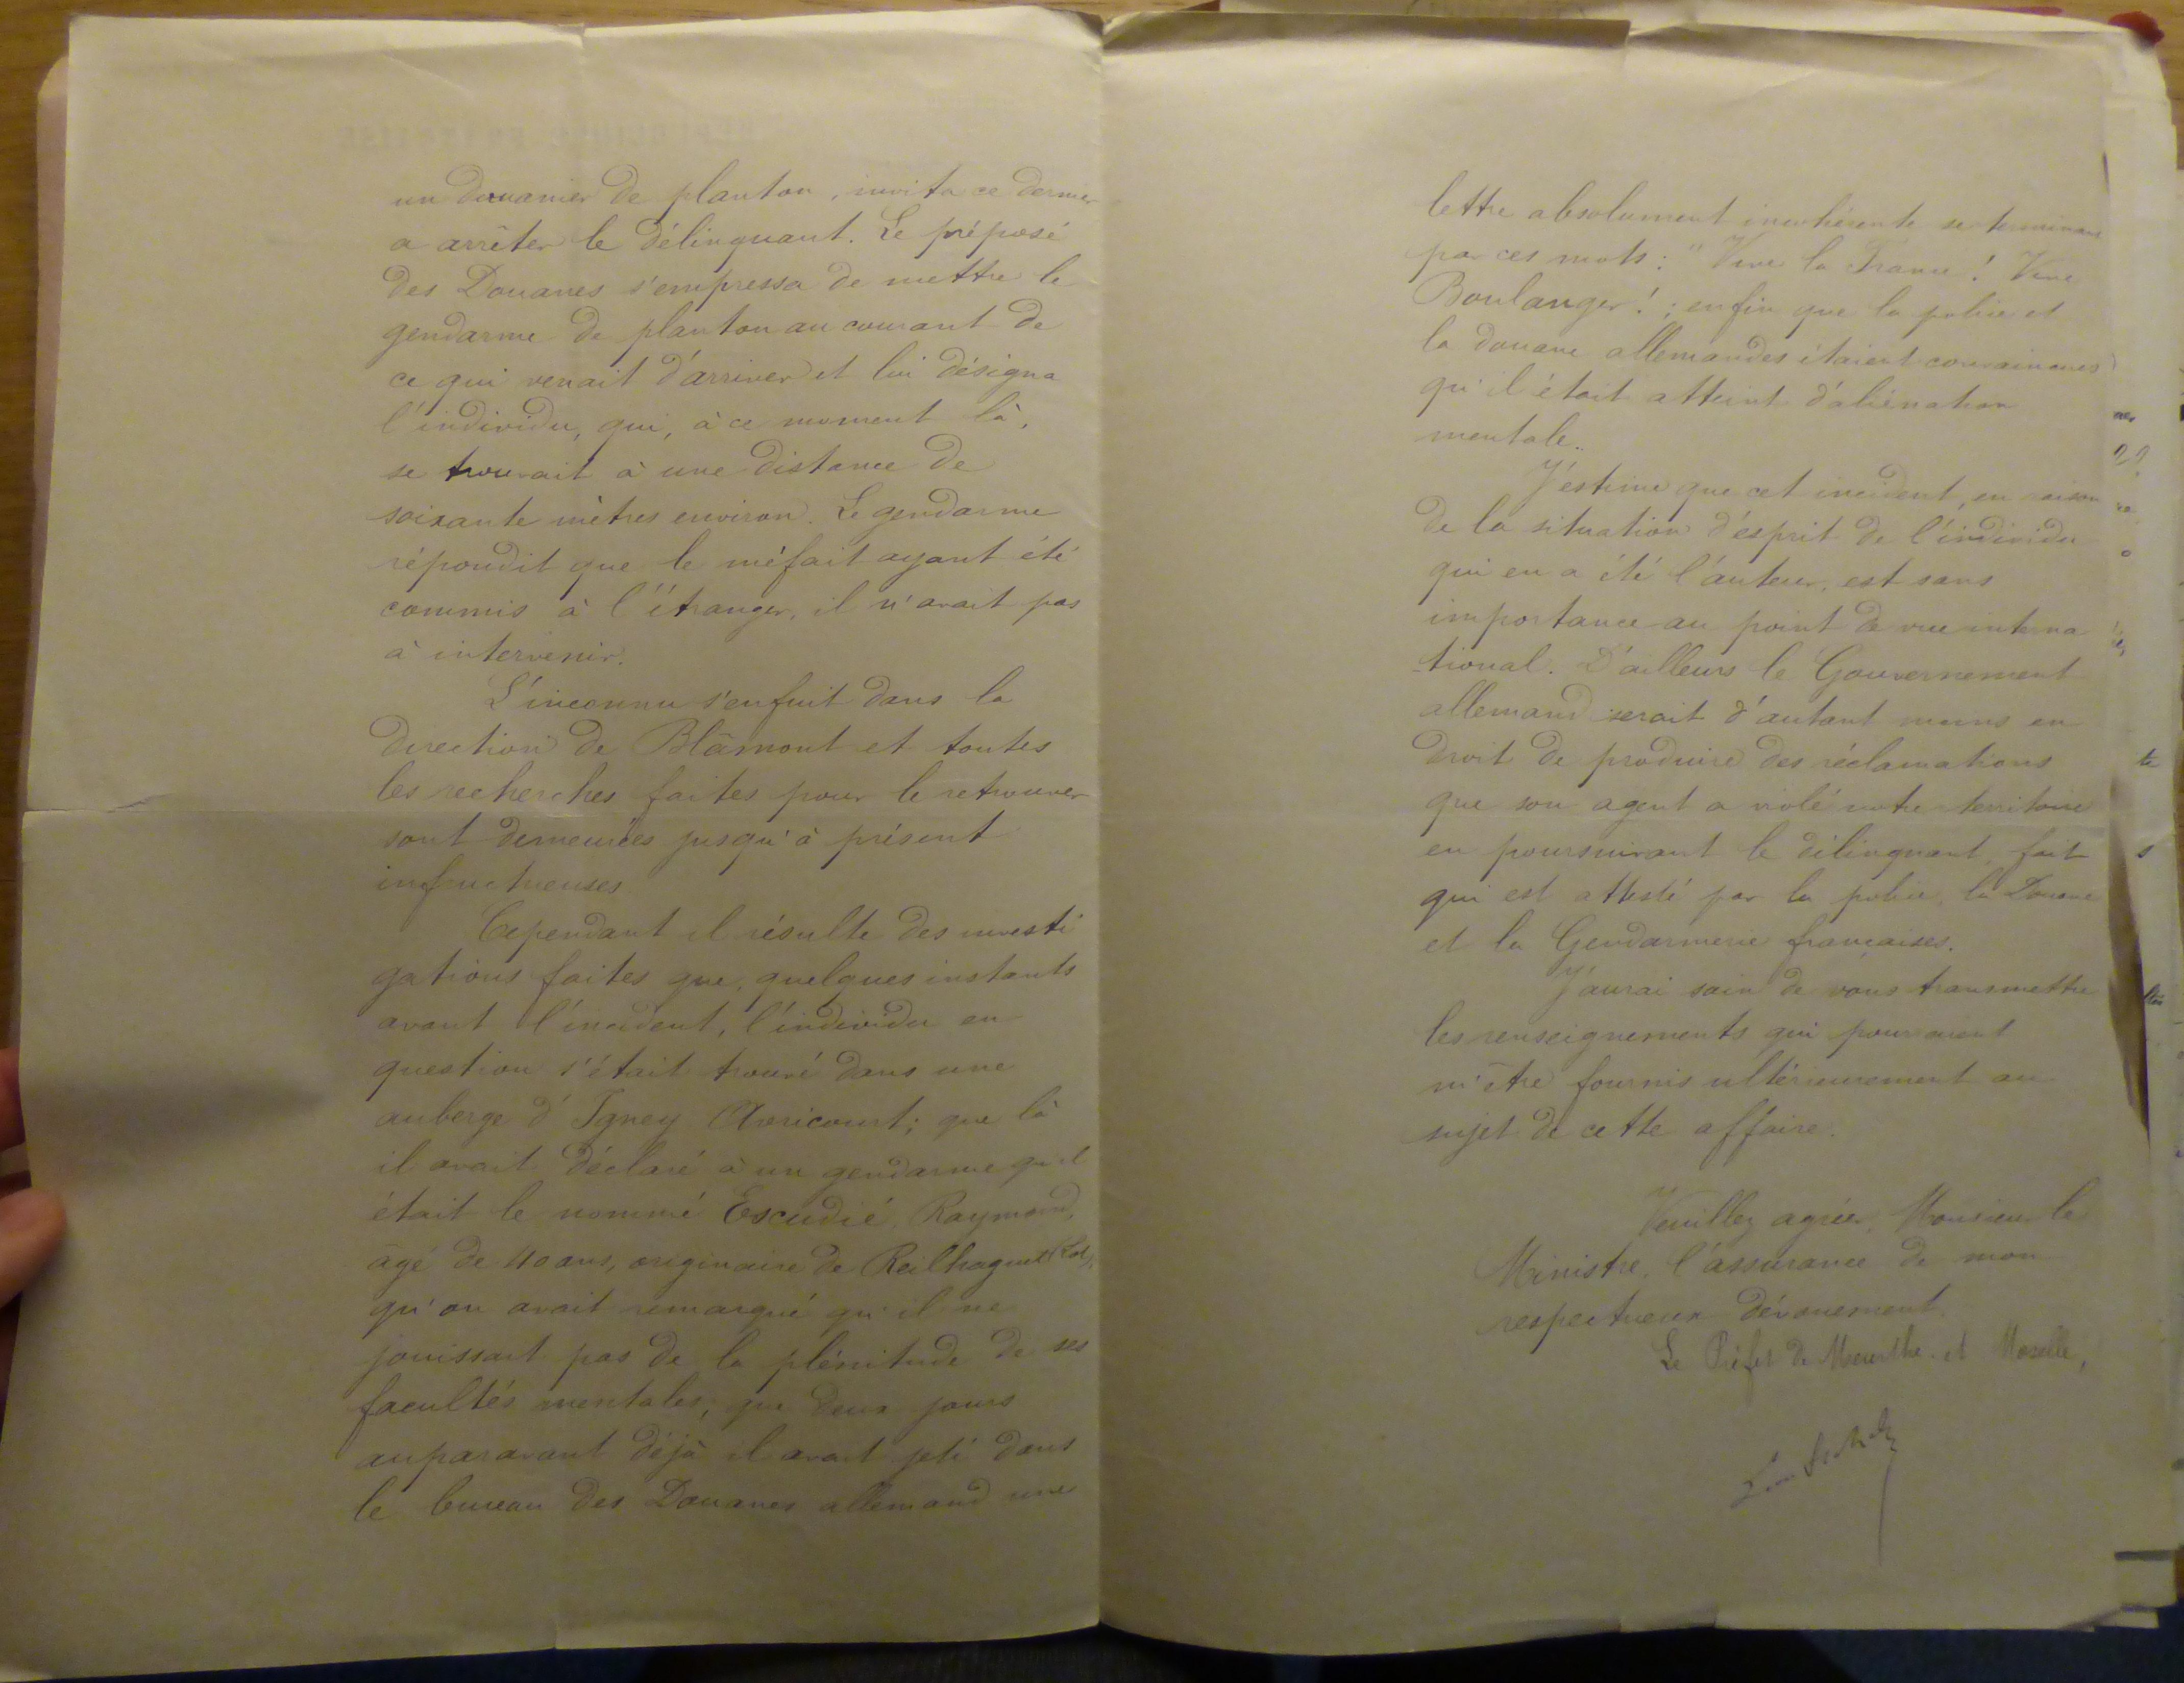 un douanier de planton, invita ce dernier
a arrêter le délinquant. Le préposé
des Douanes s'empressa de mettre le
gendarme de planton au courant de
ce qui venait d'arriver et lui désigna
l'individu, qui, à ce moment là,
se trouvait à une distance de
soixante mètres environ. Le gendarme
répondit que le méfait ayant été
commis à l'étranger, il n'avait pas
à intervenir.
L'inconnu s'enfuit dans la
direction de Blâmont et toutes
les recherches faites pour le retrouver
sont demeurées jusqu'à présent
infructueuses
Cependant il résulte des investi
gations faites que, quelques instants
avant l'incident, l'individu en
question s'était trouvé dans une
auberge d'Igney Avricourt; que là
il avait déclaré à un gendarme qu'il
était le nommé Escudié, Raymond,
âgé de 40 ans, originaire de Reilhaguet (Lot),
qu'on avait remarqué qu'il ne
jouissait pas de la plénitude de ses
facultés mentales; que deux jours
auparavant déjà il avait jeté dans
le bureau des Douanes allemand une
lettre absolument incohérente se terminant
par ces mots: "Vive la France! Vive
Boulanger!; enfin que la police et
la douane allemandes étaient convaincues
qu'il était atteint d'aliénation
mentale.
J'estime que cet incident, en raison
de la situation d'esprit de l'individu
qui en a été l'auteur, est sans
importance au point de vue interna
tional. D'ailleurs le Gouvernement
allemand serait d'autant moins en
droit de produire des réclamations
que son agent a violé notre territoire
en poursuivant le délinquant, fait
qui est attesté par la police, la Douane
et la Gendarmerie françaises.
J'aurai soin de vous transmettre
les renseignements qui pourraient
m'être fournis ultérieurement au
sujet de cette affaire.
Veuillez agréer, Monsieur le
Ministre, l'assurance de mon
respectueux dévouement.
Le Préfet de Meurthe et Moselle,